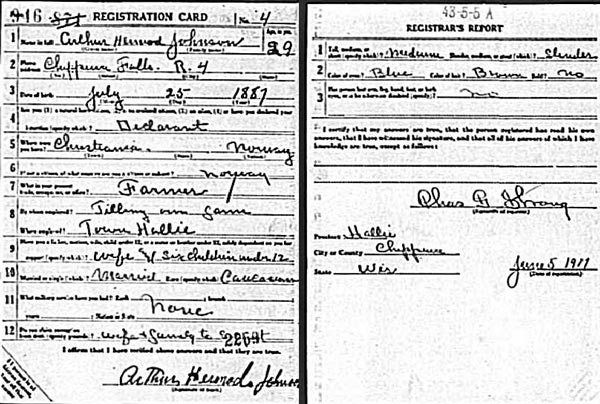 REGISTRATION CARD No. 4
1 Name in full Arthur Johnson Age, in yrs. 29
2 Home address Chippewa Falls R. 4
3 Date of birth July 25 1887
4
I am (specify which)? Declarant
5 Where were you born? Christiania Norway
6 If not a citizen, of what country are you a citizen or subject? Norway
7 What is your present trade, occupation, or office? Farmer
8 By whom employed? Tilling own farm
Where employed? Town Hallie
9 Have you a father, mother, wife, child under 12, or a sister or brother under 12, solely dependent on you for
support (specify which)? wife & six children under 12
10 Married or single (which)? Married Race (specify which)? Caucasian
11 What military service have you had? Rank ; branch
years ; Nation or State None
12 Do you claim exemption from draft (specify grounds)? wife & family to
I affirm that I have verified above answers and that they are true.
Arthur Johnson
43-5-5 A
REGISTRAR'S REPORT
1 Tall, medium, or short (specify which)? Medium Slender, medium, or stout (which)? Slender
2 Color of eyes? Blue Color of hair? Brown Bald? No
3 Has person lost arm, leg, hand, foot, or both
eyes, or is he otherwise disabled (specify)? No
I certify that my answers are true, that the person registered has read his own
answers, that I have witnessed his signature, and that all of his answers of which I have
knowledge are true, except as follows:
Chas G
(Signature of registrar)
Precinct Hallie
City or County Chippewa
State Wis June 5 1917
(Date of registration)